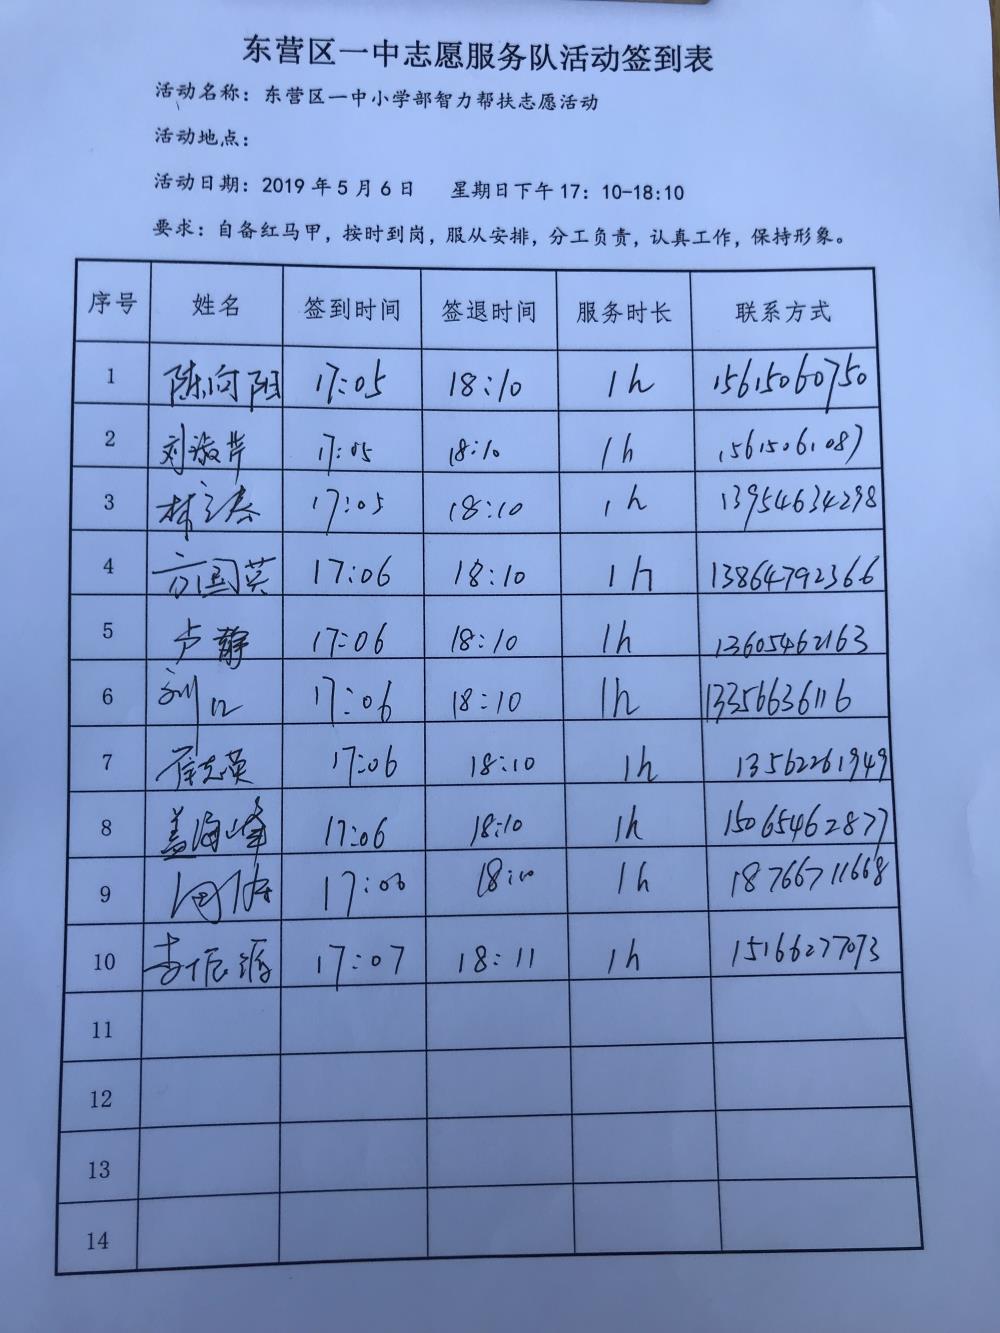 东营区一中志愿服务队活动签到表
活动名称：东营区一中小学部智力帮扶志愿活动
活动地点：
活动日期：2019年5月6日 星期日下午17：10-18:10
要求：自备红马甲，按时到岗，服从安排，分工负责，认真工作，保持形象。
序号 姓名 签到时间 签退时间 服务时长 联系方式
1 陈向阳 17:05 18:10 1h 15615060750
2 刘淑芹 17:05 18:10 1h 15615061087
3 17:05 18:10 1h 13954634298
4 方国英 17:06 18:10 1h 13864792366
5 卢静 17:06 18:10 1h 13605462163
6 17:06 18:10 1h 13356636116
7 17:06 18:10 1h 13562261949
8 盖海峰 17:06 18:10 1h 15065462877
9 17:06 18:10 1h 18766711668
10 李振源 17:07 18:11 1h 15166277073
11
12
13
14